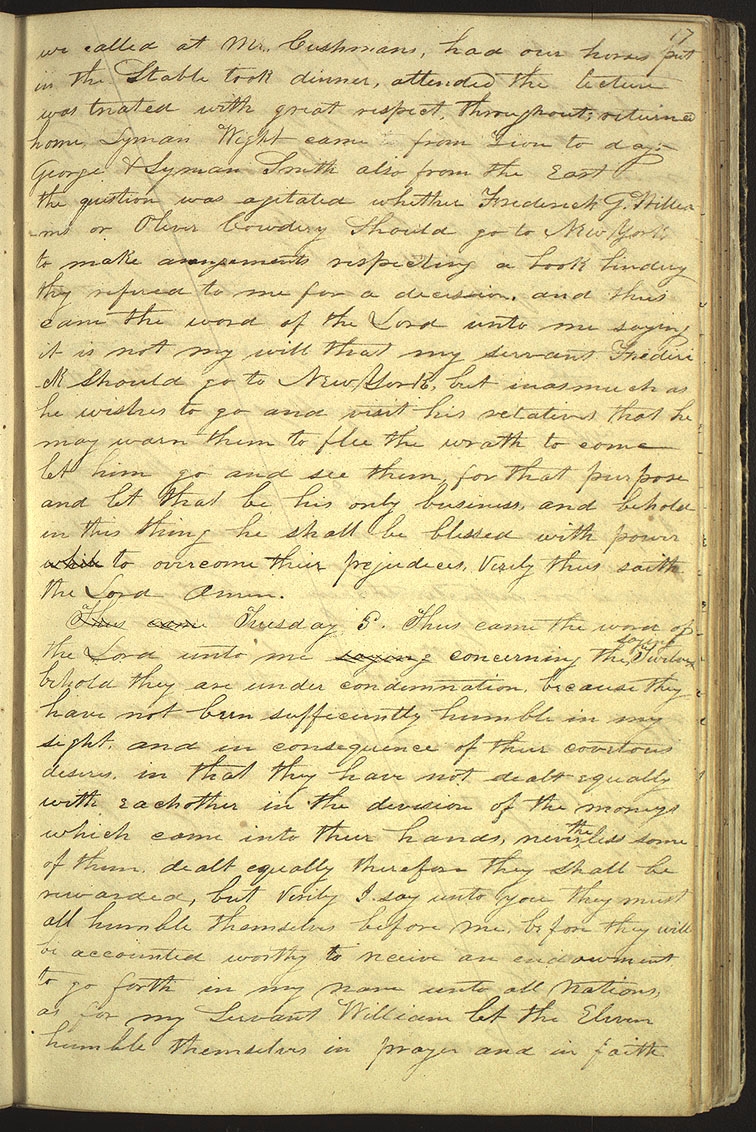 17
we called at Mr. Cushmans, had our horses put
in the Stable took dinner, attended the lecture
was treated with great respect, throughout; returned
home, Lyman Wight came from Zion to day;—
George & Lyman Smith also from the East
the question was agitated whether Frederick G. Willia
-ms or Oliver Cowdery Should go to New York
to make arangements respecting a book bindery
they refered to me for a decision, and thus
came the word of the Lord unto me saying
it is not my will that my servant Frederi
-ck should go to New York, but inasmuch as
he wishes to go and visit his relatives that he
may warn them to flee the wrath to come
let him go and see them, for that purpose
and let that be his only business, and behold
in this thing he shall be blessed with power
while to overcome their prejudices, Verily thus saith
the Lord Amen.
Thus came Tuesday 3. Thus came the word of
the Lord unto me saying concerning the, saying Twelve
behold they are under condemnation, because they
have not been sufficiently humble in my
sight, and in consequence of their covetous
desires, in that they have not dealt equally
with eachother in the division of the moneys
which came into their hands, nevertheless some
of them, dealt equally therefore they shall be
rewarded, but Verily I say unto you they must
all humble themselves before me, before they will
be accounted worthy to receive an endowment
to go forth in my name unto all nations,
as for my Servant William let the Eleven
humble themselves in prayer and in faith